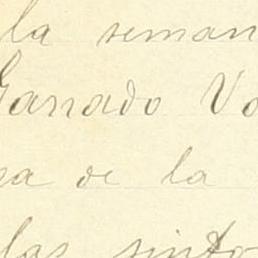 la seman
Ganado Va
sa de la
las sinto